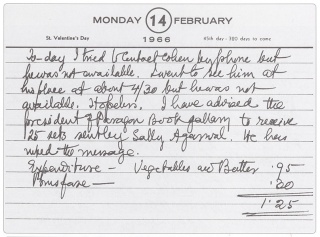 MONDAY 14 FEBRUARY
St. Valentine's Day 1966 45th day - 320 days to come
To-day I tried to contact Cohen by phone but
he was not available. I went to see him at
his place at about 4/30 but he was not
available. Hopeless. I have advised the
president of Paragon Book gallery to receive
25 sets sent by Sally Agarwal. He has
noted the message.
Expenditure — Vegetables and Butter .95
Bus fare —
1.25